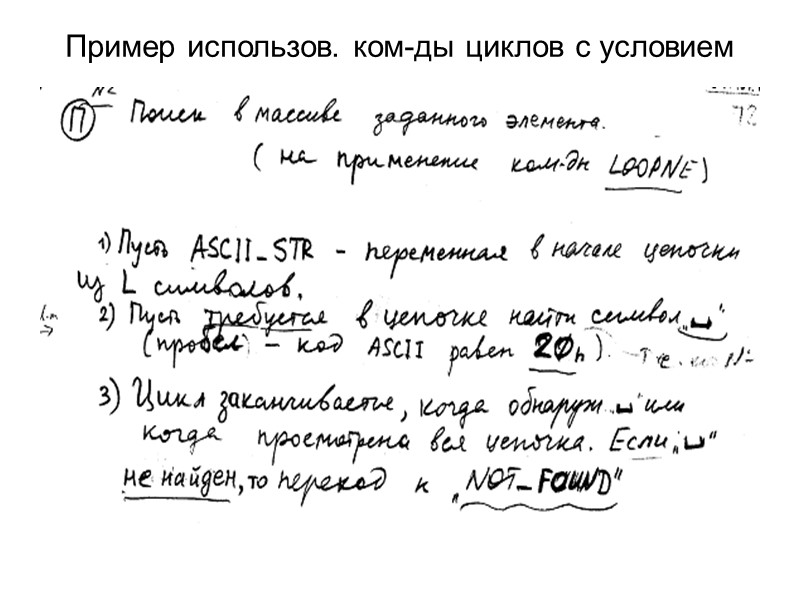 Пример использов. ком-ды циклов с условием
N2
П Поиск в массиве заданного элемента.
72
( на применение ком-ды LOOPNE )
1) Пусть ASCII_STR - переменная в начале цепочки
из L символов.
2) Пусть требуется в цепочке найти символ „␣"
(пробел – код ASCII равен 20h).
3) Цикл заканчивается, когда обнаруж. ␣" или
когда просмотрена вся цепочка. Если „␣"
не найден, то переход к „NOT_FOUND"